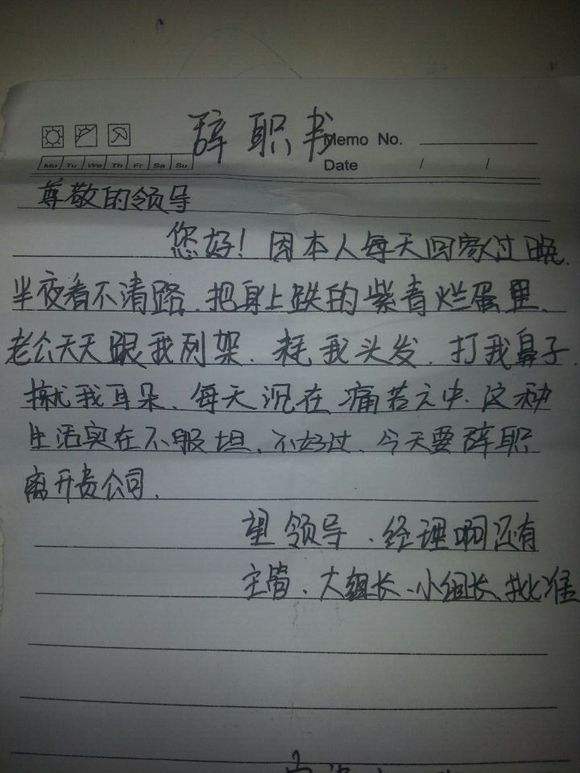 辞职书
Memo No.
Mo Tu We Th Fr Sa Su
Date / /
尊敬的领导
您好！因本人每天回家过晚.
半夜看不清路.把身上跌的紫青烂蛋里.
老公天天跟我列架.耗我头发.打我鼻子.
揪我耳朵.每天沉在痛苦之中.这种
生活实在不服坦.不好过.今天要辞职
离开贵公司.
望领导、经理啊还有
主管、大组长、小组长、批准